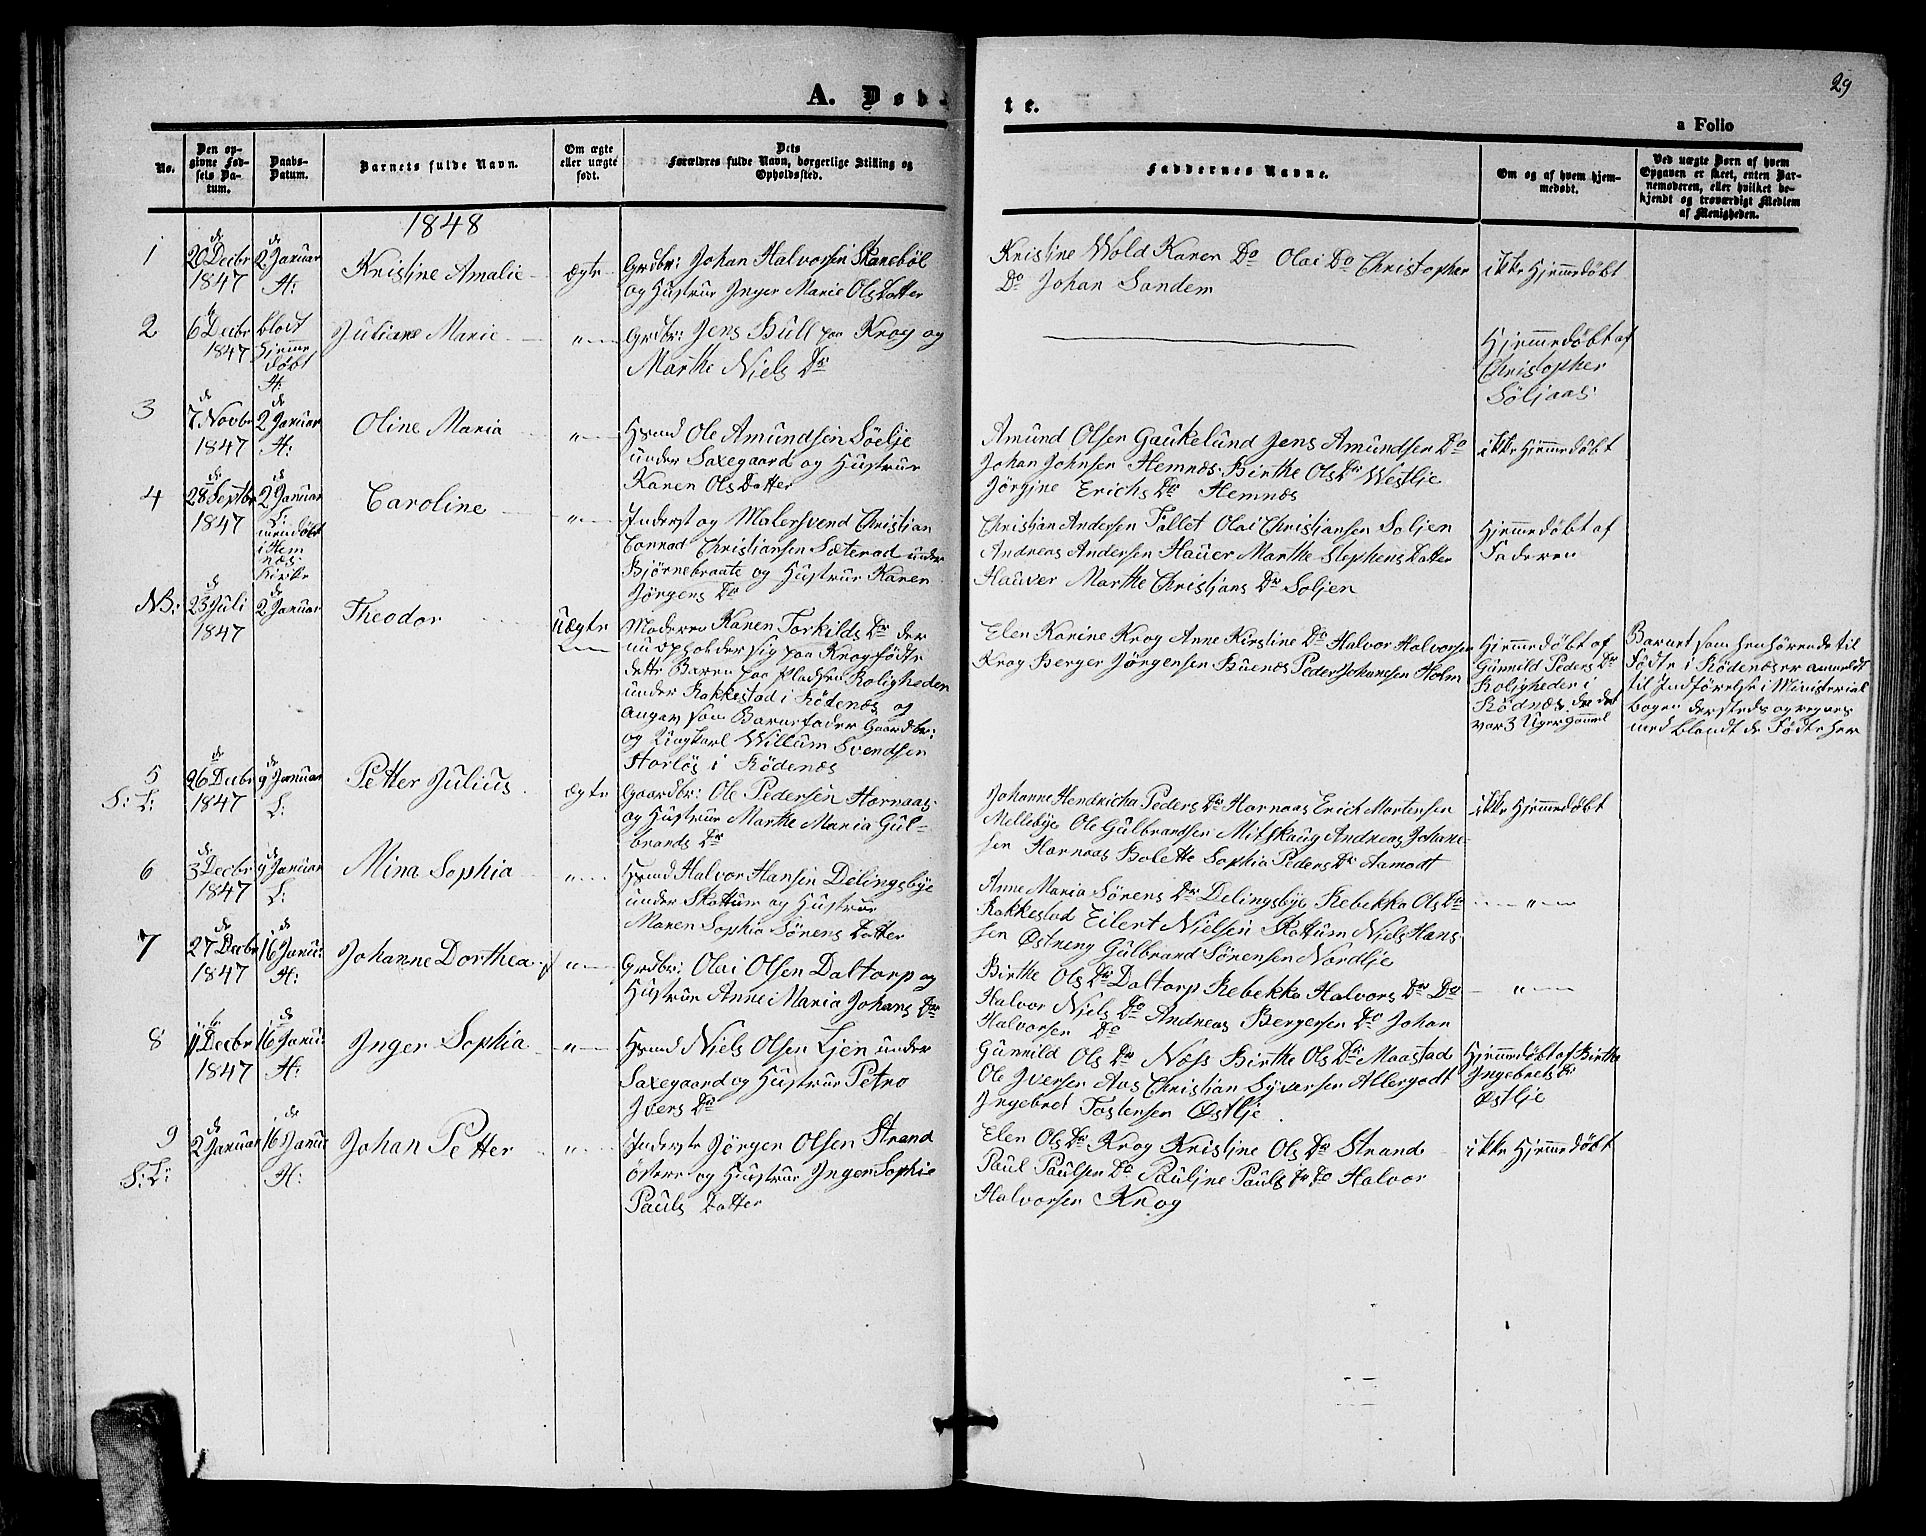 29
A. Døb-
te.
a Folio
No.
Den op-
givne Fød-
sels Da-
tum.
Daabs-
Datum.
Barnets fulde Navn.
Om ægte
eller uægte
født.
Dets
Forældres fulde Navn, borgerlige Stilling og
Opholdssted.
Faddernes Navne.
Om og af hvem hjem-
medøbt.
Ved uægte Børn af hvem
Opgaven er skeet, enten Bar-
nemoderen, eller hvilket be-
kjendt og troværdigt Medlem
af Menigheden.
1848
1
d
20 Decbr
1847
d
2 Januar
H:
Kristine Amalie
ægte
Grdbr: Johan Halvorsen Skanebøl
og Hustrue Inger Marie Olsdatter
Kristine Wold Karen Do Olai Do Christopher
Do Johan Sandem
ikke Hjemmedøbt
2
6 Decbr
1847
blodt
Hjemme
døbt
H:
Juliane Marie
"
Grdbr: Jens Bull paa Krog og
Marthe Niels Dr
Hjemmedøbt af
Christopher
Søljaas
3
d
7 Novbr
1847
d
2 Januar
H:
Oline Maria
"
Hsmd Ole Amundsen Søelje
under Saxegaard og Hustrue
Karen Olsdatter
Amund Olsen Gaukelund Jens Amundsen Do
Johan Johnsen Hemnæs Birthe Ols Dr Westlie
Jørgine Erichs Dr Hemnæs
ikke Hjemmedøbt
4
d
28 Septbr
1847
d
2 Januar
L:
i Hem
næs
Kirke
Caroline
"
Inderst og Malersvend Christian
Conrad Christiansen Sæterød under
Bjørnebraate og Hustrue Karen
Jørgens Dr
Christian Andersen Tallet Olai Christiansen Soljen
Andreas Andersen Hauer Marthe Stephensdatter
Hauver Marthe Christians Dr Soljen
Hjemmedøbt af
Faderen
NB:
d
23 Juli
1847
d
2 Januar
Theodor
uægte
Moderen Karen Torkilds Dr der
nu opholder sig paa Krog fødte
dette Barn paa Pladsen Roligheden
under Rakkestad i Rødenæs og
angav som Barnefader Gaardbr:
og Ungkarl Willum Svendsen
Storløs i Rødenæs
Elen Karine Krog Anne Kirstine Do Halvor Halvorsen
Krog Berger Jørgensen Buenæs Peder Johansen Holm
Hjemmedøbt af
Gunnild Peders Dr
Roligheden i
Rødnæs da det
var 3 Uger gammel
Barnet som henhørende til
Fødte i Rødenæs er anmeldt
til Indførelse i Ministerial
bogen dersteds og regnes
med blandt de Fødte her
5
S: L:
d
26 Decbr
1847
d
9 Januar
L:
Petter Julius
ægte
Gaardbr: Ole Pedersen Hornaas
og Hustrue Marthe Maria Gul-
brands Dr
Johanne Hendricha Peders Dr Hornaas Erich Mortensen
Mellebye Ole Gulbrandsen Mitskaug Andreas Johane-
sen Hornaas Bolette Sophia Peders Dr Aamodt
ikke Hjemmedøbt
6
d
3 Decbr
1847
d
9 Januar
L:
Mina Sophia
"
Hsmd Halvor Hansen Delingsbye
under Skottum og Hustrue
Maren Sophia Sørens Datter
Anne Maria Sørens Dr Delingsbye Rebekka Ols Dr
Rakkestad Eilert Nielsen Skottum Niels Han-
sen Østreng Gulbrand Sørensen Nordlie
"
7
d
27 Decbr
1847
d
16 Janu:
H:
Johanne Dorthea
"
Grdbr: Olai Olsen Daltorp og
Hustrue Anne Maria Johans Dr
Birthe Ols Dr Daltorp Rebekka Halvors Dr Do
Halvor Niels Do Andreas Bergersen Do Johan
Halvorsen Do
"
8
11 Decbr
1847
d
16 Janu:
H:
Inger Sophia
"
Hsmd Niels Olsen Lien under
Saxegaard og Hustrue Petro
Ivers Dr
Gunnild Ols Dr Næss Birthe Ols Dr Maastad
Ole Iversen Aas Christian Syversen Allergodt
Ingebret Tostensen Østlie
Hjemmedøbt af Birthe
Ingebrets Dr
Østlie
9
S: L:
d
2 Januar
d
16 Janu:
H:
Johan Petter
"
Inderste Jørgen Olsen Strand
østre og Hustrue Inger Sophie
Pauls Datter
Elen Ols Dr Krog Kristine Ols Dr Strand
Paul Paulsen Do Pauline Pauls Dr Do Halvor
Halvorsen Krog
ikke Hjemmedøbt